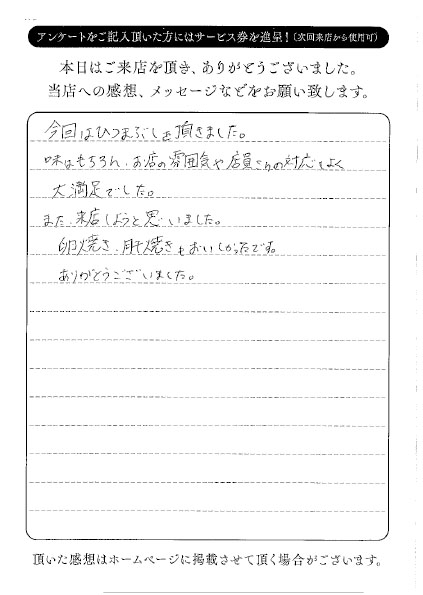 アンケートをご記入頂いた方にはサービス券を進呈！（次回来店から使用可）
本日はご来店を頂き、ありがとうございました。
当店への感想、メッセージなどをお願い致します。
今回はひつまぶしを頂きました。
味はもちろん、お店の雰囲気や店員さんの対応もよく
大満足でした。
また、来店しようと思いました。
卵焼き、肝焼きもおいしかったです。
ありがとうございました。
頂いた感想はホームページに掲載させて頂く場合がございます。